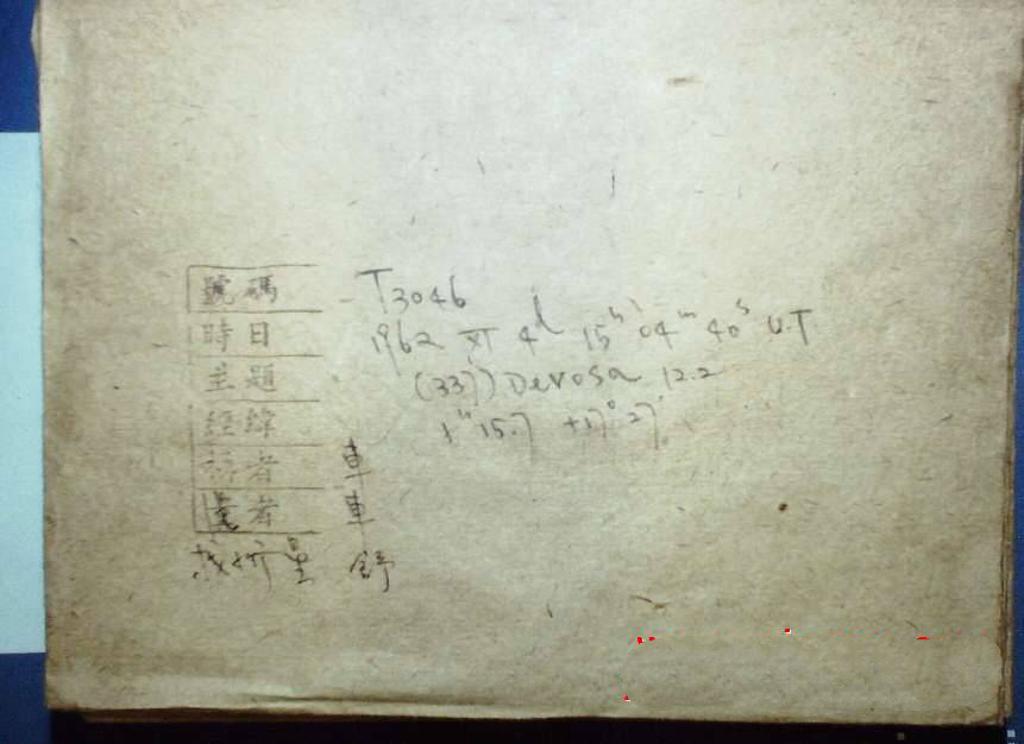 號碼 T3046
時日 1962 XI 4d 15h 04m 40s U.T
主題 (337) Devosa 12.2
經緯 1h 15.7 +17° 27'
者 車
者 車
星 舒